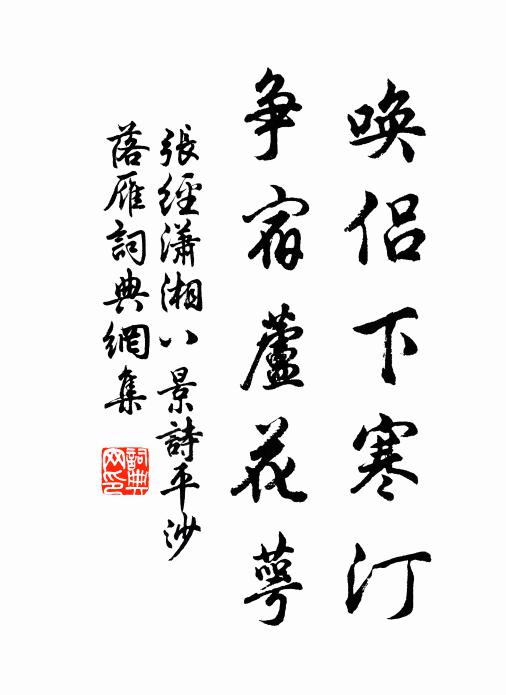 喚侶下寒汀
爭宿蘆花萼
張經瀟湘八景詩平沙
落雁詞典網集
詞典网印